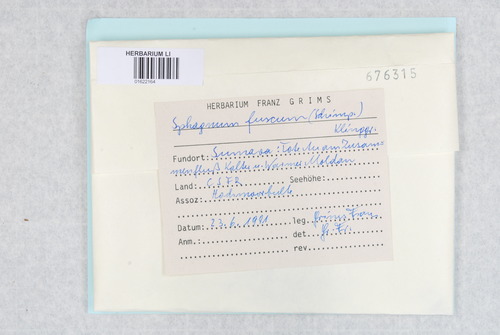 HERBARIUM LI
01622164
676315
HERBARIUM FRANZ GRIMS
Sphagnum fuscum (Schimp.)
Klinggr.
Fundort: Sumava: Tote Au am Zusam-
menfluß Kalte u. Warme Moldau
Land: CSFR Seehöhe:
Assoz: Hochmoorbulte
Datum: 23.6.1991 leg. Grims Franz
Anm.: det. Gr. Fr.
rev.